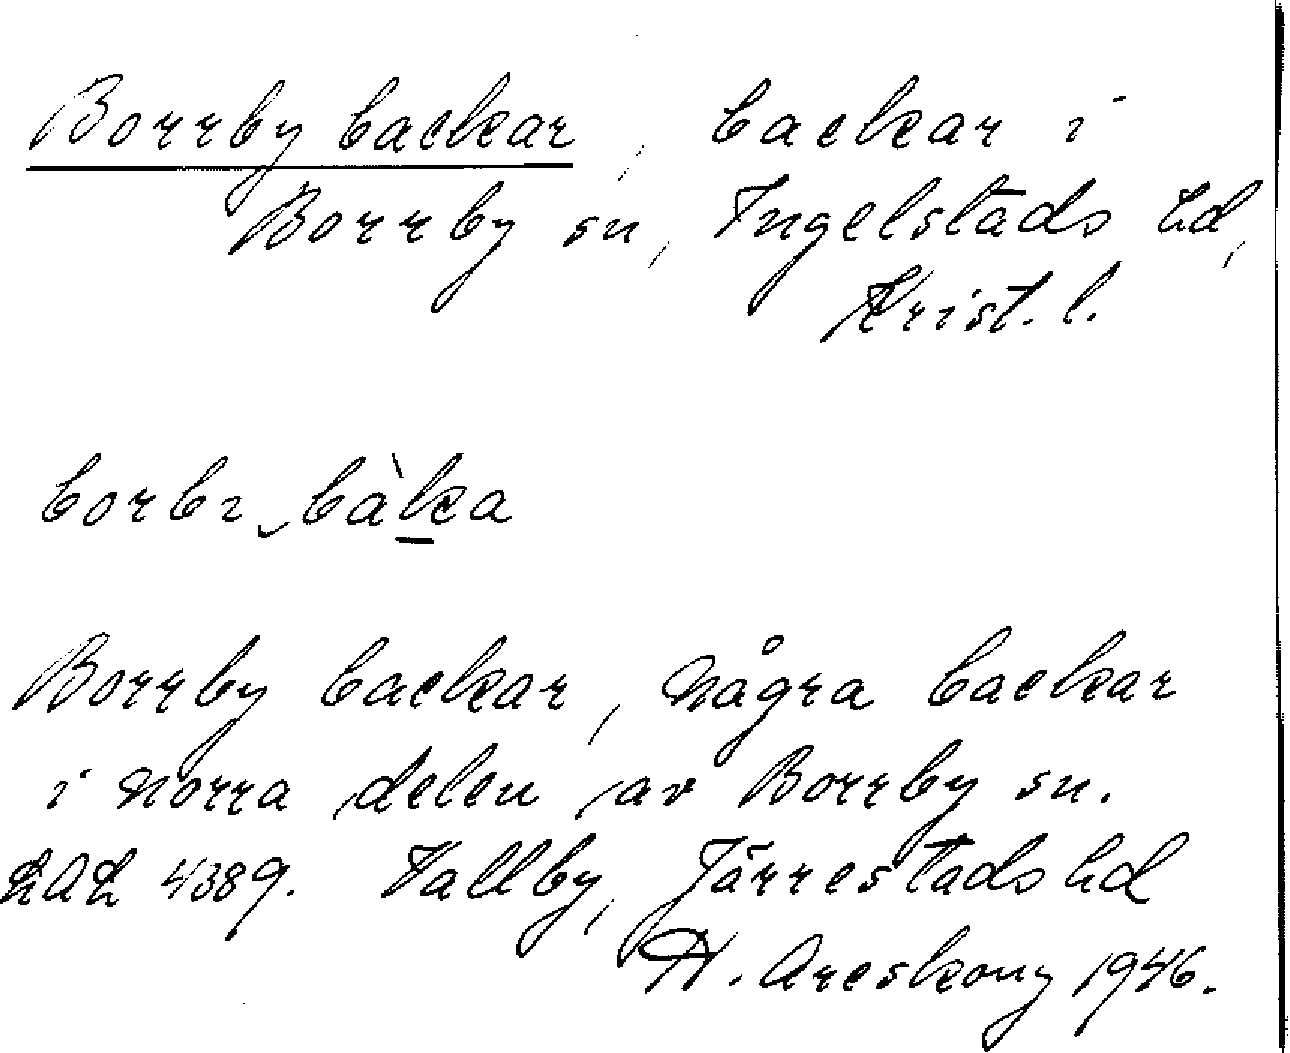 Borrby backar, backar i
Borrby sn, Ingelstads hd,
Krist. l.
borbı bàka
Borrby backar, några backar
i norra delen av Borrby sn.
LAL 4389. Vallby, Järrestads hd
H. Areskoug 1946.